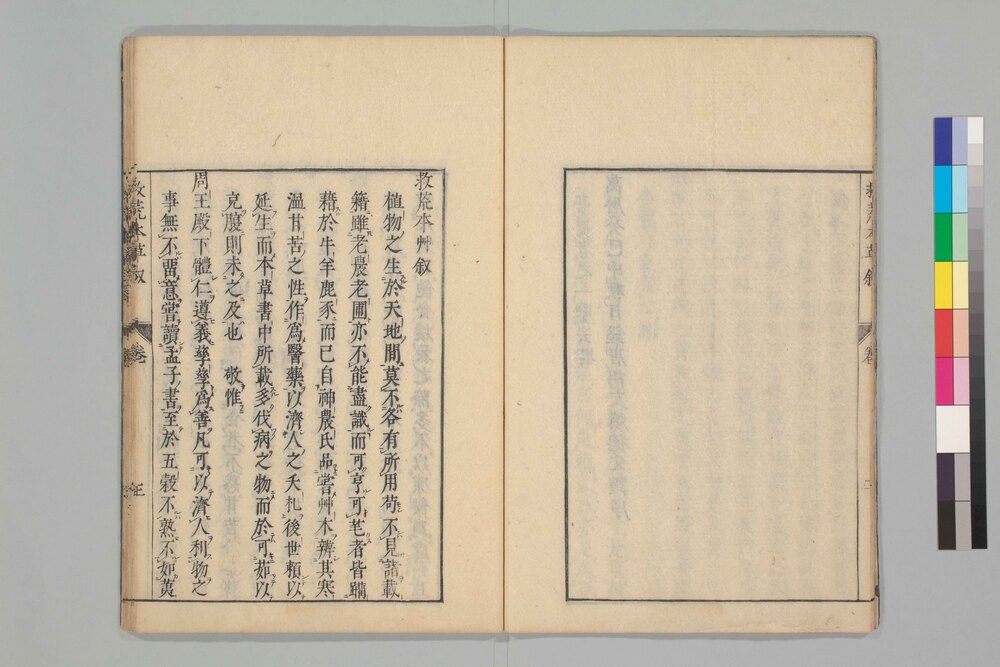 救荒本草叙
二
救荒本艸叙
植物之生於天地間莫不各有所用苟不見諸載
籍雖老農老圃亦不能盡識而可亨可芼者皆躪
藉於牛羊鹿豕而已自神農氏品嘗艸木辨其寒
溫甘苦之性作爲醫藥以濟人之夭札後世頼以
延生而本草書中所載多伐病之物而於可茹以
充腹則未之及也　敬惟
周王殿下體仁遵義孳孳爲善凡可以濟人利物之
事無不畱意嘗讀孟子書至於五穀不熟不如荑
救荒本草叙